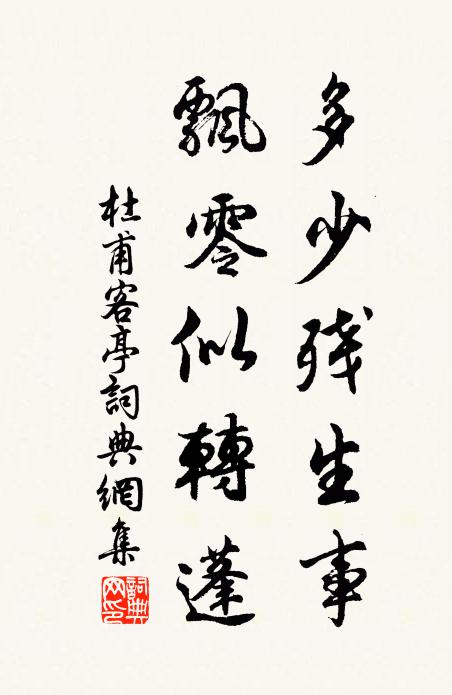 多少残生事
飄零似轉蓬
杜甫客亭詞典網集
詞典網印